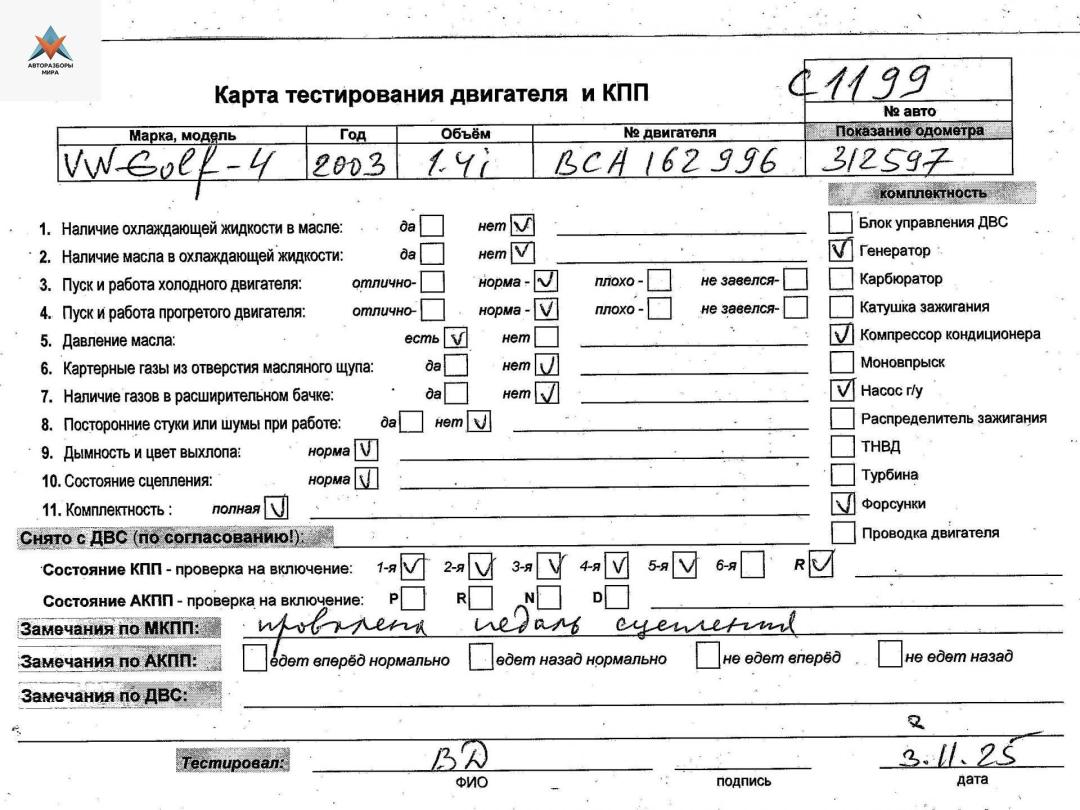 АВТОРАЗБОРЫ
МИРА
Карта тестирования двигателя и КПП
С1199
№ авто
Марка, модель Год Объём № двигателя Показание одометра
VW Golf-4 2003 1.4i BCA 162 996 312597
комплектность
1. Наличие охлаждающей жидкости в масле: да нет V
Блок управления ДВС
2. Наличие масла в охлаждающей жидкости: да нет V
V Генератор
3. Пуск и работа холодного двигателя: отлично- норма - V плохо - не завелся-
Карбюратор
4. Пуск и работа прогретого двигателя: отлично- норма - V плохо - не завелся-
Катушка зажигания
5. Давление масла: есть V нет
V Компрессор кондиционера
6. Картерные газы из отверстия масляного щупа: да нет V
Моновпрыск
7. Наличие газов в расширительном бачке: да нет V
V Насос г/у
8. Посторонние стуки или шумы при работе: да нет V
Распределитель зажигания
9. Дымность и цвет выхлопа: норма V
ТНВД
10. Состояние сцепления: норма V
Турбина
11. Комплектность : полная V
V Форсунки
Снято с ДВС (по согласованию!):
Проводка двигателя
Состояние КПП - проверка на включение: 1-я V 2-я V 3-я V 4-я V 5-я V 6-я R V
Состояние АКПП - проверка на включение: P R N D
Замечания по МКПП: провалена педаль сцепления
Замечания по АКПП: едет вперёд нормально едет назад нормально не едет вперёд не едет назад
Замечания по ДВС:
Тестировал: ВД 3.11.25
ФИО подпись дата